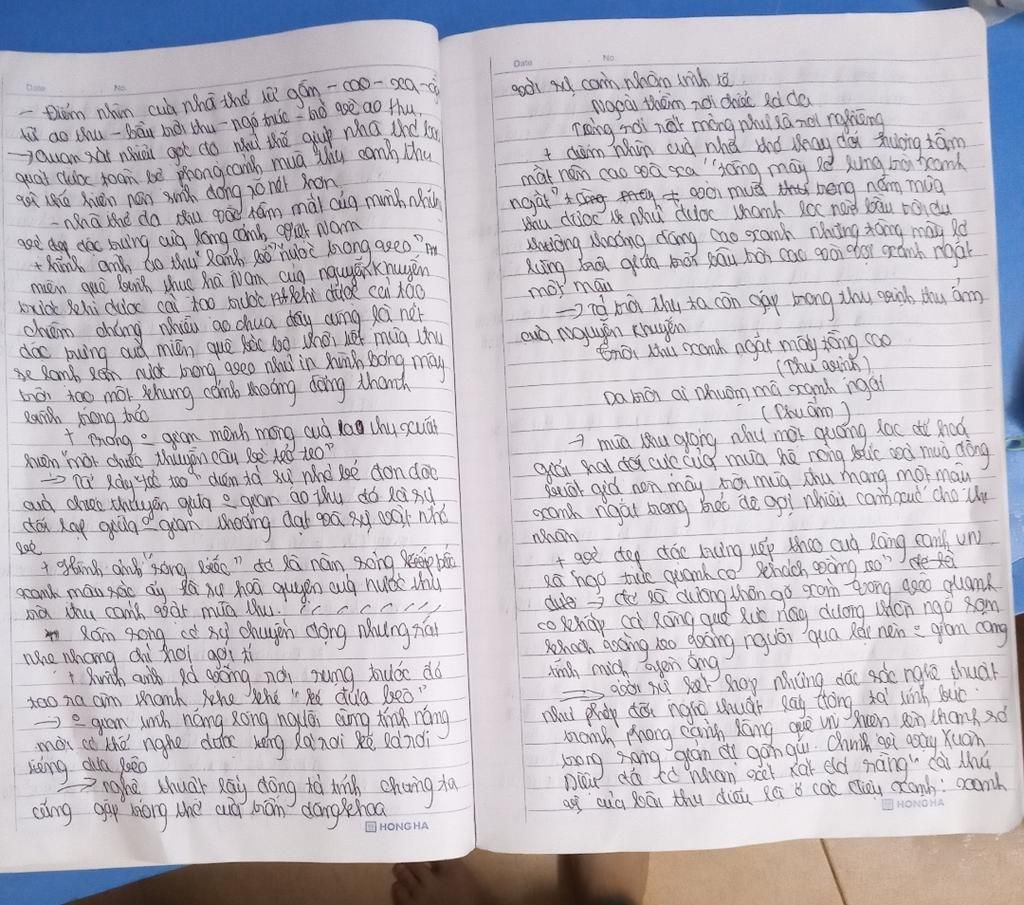 Date No.
- Điểm nhìn của nhà thơ từ gần - cao - xa - gần
từ ao thu - bầu trời thu - ngõ trúc - trở về ao thu
→ Quan sát nhiều góc độ như thế giúp nhà thơ
quát được toàn bộ phong cảnh mùa thu cảnh thu
vì thế hiện nên sinh động rõ nét hơn
- nhà thơ đã thu vào tầm mắt của mình những
vẻ đẹp đặc trưng của làng cảnh Việt Nam
+ hình ảnh ao thu "lạnh lẽo" "nước trong veo"
miền quê bình lục hà Nam của nguyễn khuyến
trước khi được cải tạo trước khi được cải tạo
chiếm chúng nhiều ao chua đây cũng là nét
đặc trưng của miền quê bắc bộ thời tiết mùa thu
se lạnh làn nước trong veo như in hình bóng mây
trời tạo một khung cảnh thoáng đãng thanh
bình trong trẻo
+ trong o gian mênh mông của ao thu xuất
hiện "một chiếc thuyền câu bé tẻo teo"
→ Từ láy "tẻo teo" diễn tả sự nhỏ bé đơn độc
của chiếc thuyền giữa o gian ao thu đó là sự
đối lập giữa o gian thoáng đạt và sự vật nhỏ
bé
+ Hình ảnh "sóng biếc" đó là làn sóng
xanh màu sắc ấy là sự hoà quyện của nước thu
trời thu cảnh vật mùa thu.
làn sóng có sự chuyển động nhưng rất
nhẹ nhàng chỉ hơi gợi tí
+ hình ảnh lá vàng rơi rụng trước đó
tạo ra âm thanh khe khẽ "khẽ đưa vèo"
→ o gian tĩnh lặng lòng người cũng tĩnh lặng
mới có thể nghe được tiếng lá rơi kẽ lá rơi
tiếng đưa vèo
→ nghệ thuật lấy động tả tĩnh chúng ta
cũng gặp trong thơ của trần đăng khoa
HONG HA
Date No.
với sự cảm nhận tinh tế
Ngoài thềm rơi chiếc lá đa
Tiếng rơi rất mỏng như là rơi nghiêng
+ điểm nhìn của nhà thơ thay đổi hướng tầm
mắt nên cao và xa "tầng mây lơ lửng trời xanh
ngắt" với mưa trong năm mùa
thu được ví như được thanh lọc nên bầu trời dịu
thường thoáng đãng cao xanh những tầng mây lơ
lửng trôi giữa trời bầu trời cao vời vợi xanh ngắt
một màu
→ Tả trời thu ta còn gặp trong thu vịnh thu ẩm
của Nguyễn Khuyến
trời thu xanh ngắt mấy tầng cao
(Thu vịnh)
Da trời ai nhuộm mà xanh ngắt
(Thu ẩm)
→ mùa thu giống như một quãng lọc để hoá
giải hai đối cực của mùa hè nóng bức và mùa đông
buốt giá nên mây trời mùa thu mang một màu
xanh ngắt trong trẻo để gợi nhiều cảm xúc cho thi
nhân
+ vẻ đẹp đặc trưng tiếp theo của làng cảnh VN
là ngõ trúc quanh co "khách vắng teo"
→ đó là đường thôn ngõ xóm trong veo quanh
co khắp cả làng quê lúc này đường thôn ngõ xóm
khách vắng teo vắng người qua lại nên o gian càng
tĩnh mịch yên ắng
→ với sự kết hợp những đặc sắc nghệ thuật
như phép đối nghệ thuật lấy động tả tĩnh bức
tranh phong cảnh làng quê VN hiện lên thanh sơ
trong sáng giản dị gần gũi. Chính vì vậy Xuân
Diệu đã từ nhận xét xát đó rằng "cái thú
vị của bài thu điếu là ở các điệu xanh: xanh
HONG HA